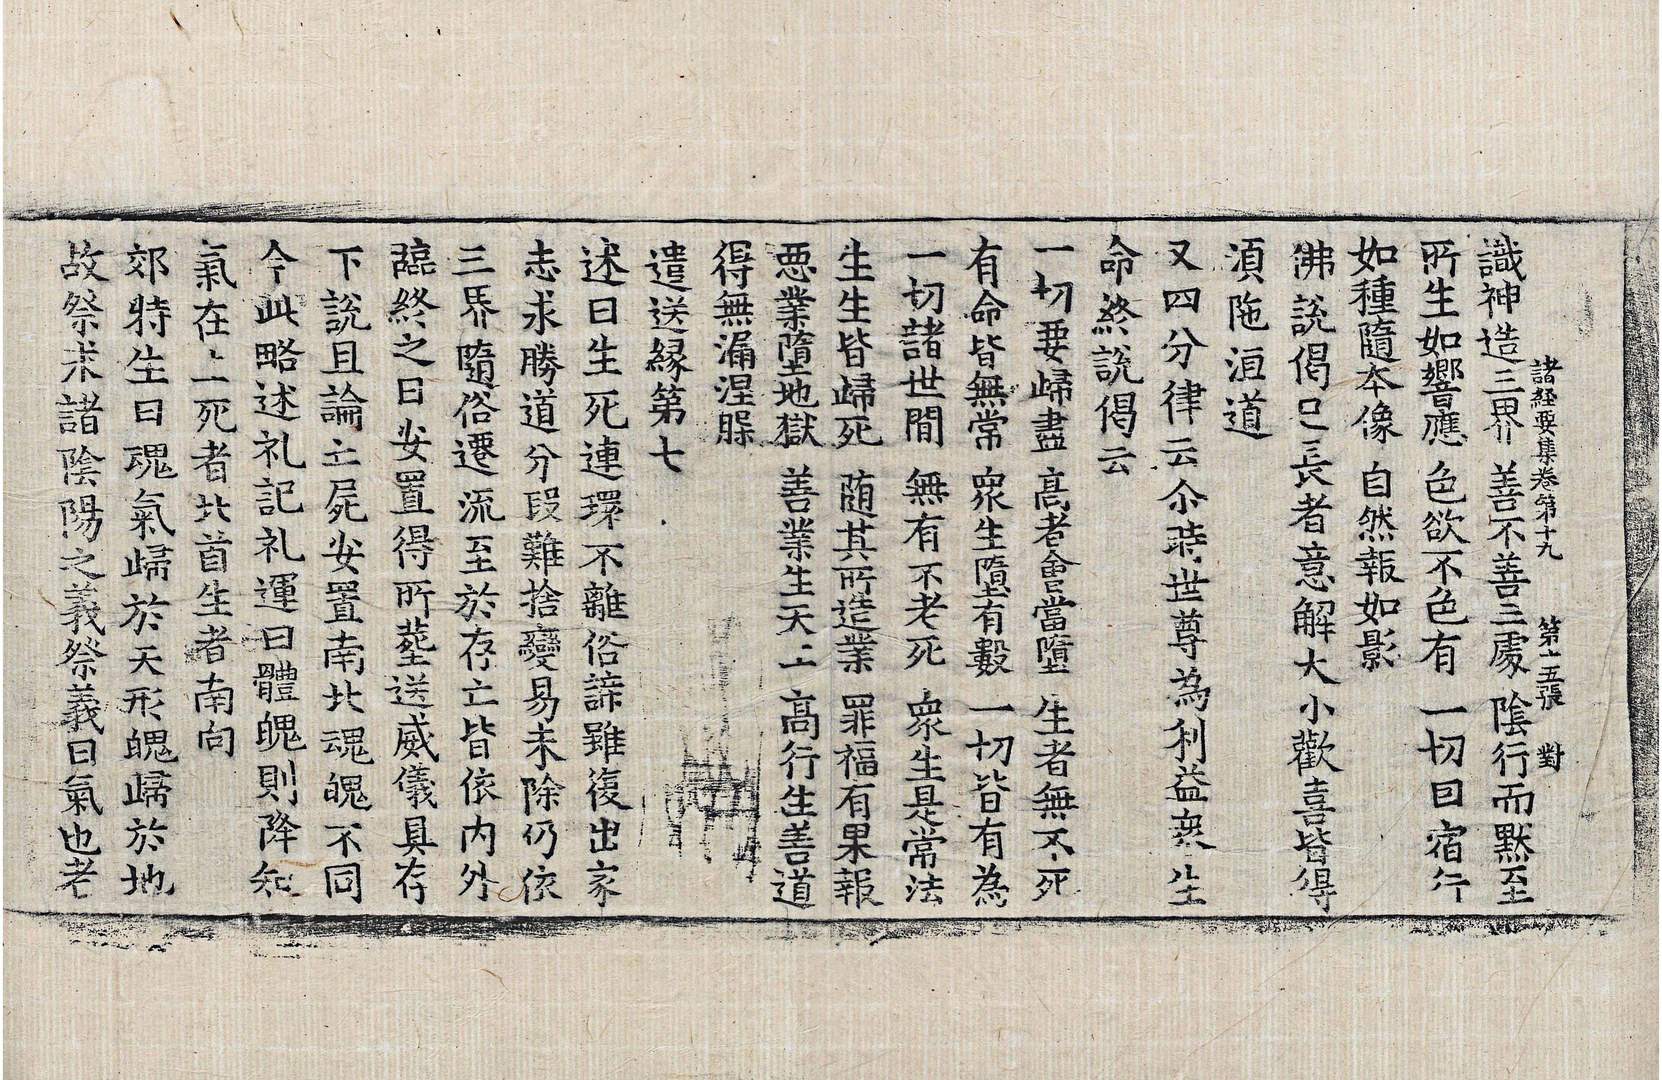 諸経要集卷第十九 第十五張 對
識神造三界 善不善三處 陰行而默至
所生如響應 色欲不色有 一切因宿行
如種隨本像 自然報如影
佛說偈已長者意解大小歡喜皆得
湏陁洹道
又四分律云尒時世尊為利益衆生
命終說偈云
一切要歸盡 高者會當墮 生者無不死
有命皆無常 衆生墮有數 一切皆有為
一切諸世間 無有不老死 衆生是常法
生生皆歸死 随其所造業 罪福有果報
惡業墮地獄 善業生天上 高行生善道
得無漏涅槃
遣送緣第七
述曰生死連環不離俗諦雖復出家
志求勝道分段難捨變易未除仍依
三界隨俗遷流至於存亡皆依內外
臨終之日安置得所塟送威儀具存
下說且論亡屍安置南北魂魄不同
今此略述礼記礼運曰體魄則降知
氣在上死者北首生者南向
郊特生曰魂氣歸於天形魄歸於地
故祭求諸陰陽之義祭義曰氣也者